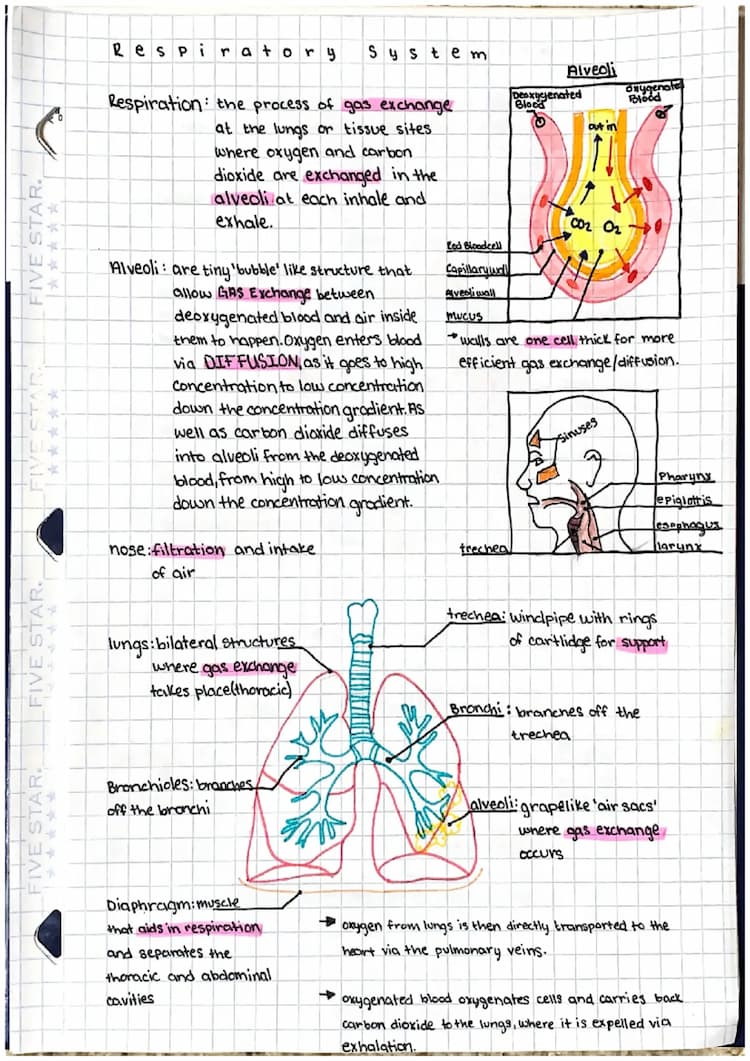 Respiratory System
Alveoli
Deoxygenated
Blood
Oxygenated
Blood
out in
CO2 O2
Red Bloodcell
Capillarywall
Alveoliwall
mucus
→ walls are one cell thick for more
efficient gas exchange/diffusion.
Respiration: the process of gas exchange
at the lungs or tissue sites
where oxygen and carbon
dioxide are exchanged in the
alveoli at each inhale and
exhale.
Alveoli: are tiny 'bubble' like structure that
allow GAS Exchange between
deoxygenated blood and air inside
them to happen. Oxygen enters blood
via DIFFUSION, as it goes to high
concentration to low concentration
down the concentration gradient. As
well as carbon dioxide diffuses
into alveoli from the deoxygenated
blood, from high to low concentration
down the concentration gradient.
sinuses
Pharynx
epiglottis
esophagus
larynx
trechea
nose: filtration and intake
of air
lungs: bilateral structures
where gas exchange
takes place(thoracic)
trechea: windpipe with rings
of cartlidge for support
Bronchi: branches off the
trechea
Bronchioles: branches
off the bronchi
alveoli: grapelike 'air sacs'
where gas exchange
occurs
Diaphragm: muscle
that aids in respiration
and separates the
thoracic and abdominal
cavities
→ oxygen from lungs is then directly transported to the
heart via the pulmonary veins.
→ oxygenated blood oxygenates cells and carries back
carbon dioxide to the lungs, where it is expelled via
exhalation.
FIVE STAR.
FIVE STAR.
FIVE STAR.
FIVE STAR.